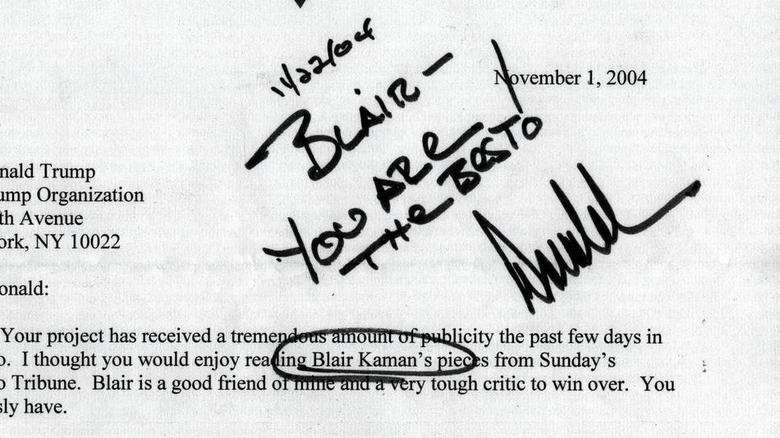 11/22/04
November 1, 2004
BLAIR -
YOU ARE
THE BEST!
nald Trump
ump Organization
th Avenue
ork, NY 10022
Donald
onald:
Your project has received a tremendous amount of publicity the past few days in
o. I thought you would enjoy reading Blair Kaman's pieces from Sunday's
o Tribune. Blair is a good friend of mine and a very tough critic to win over. You
sly have.